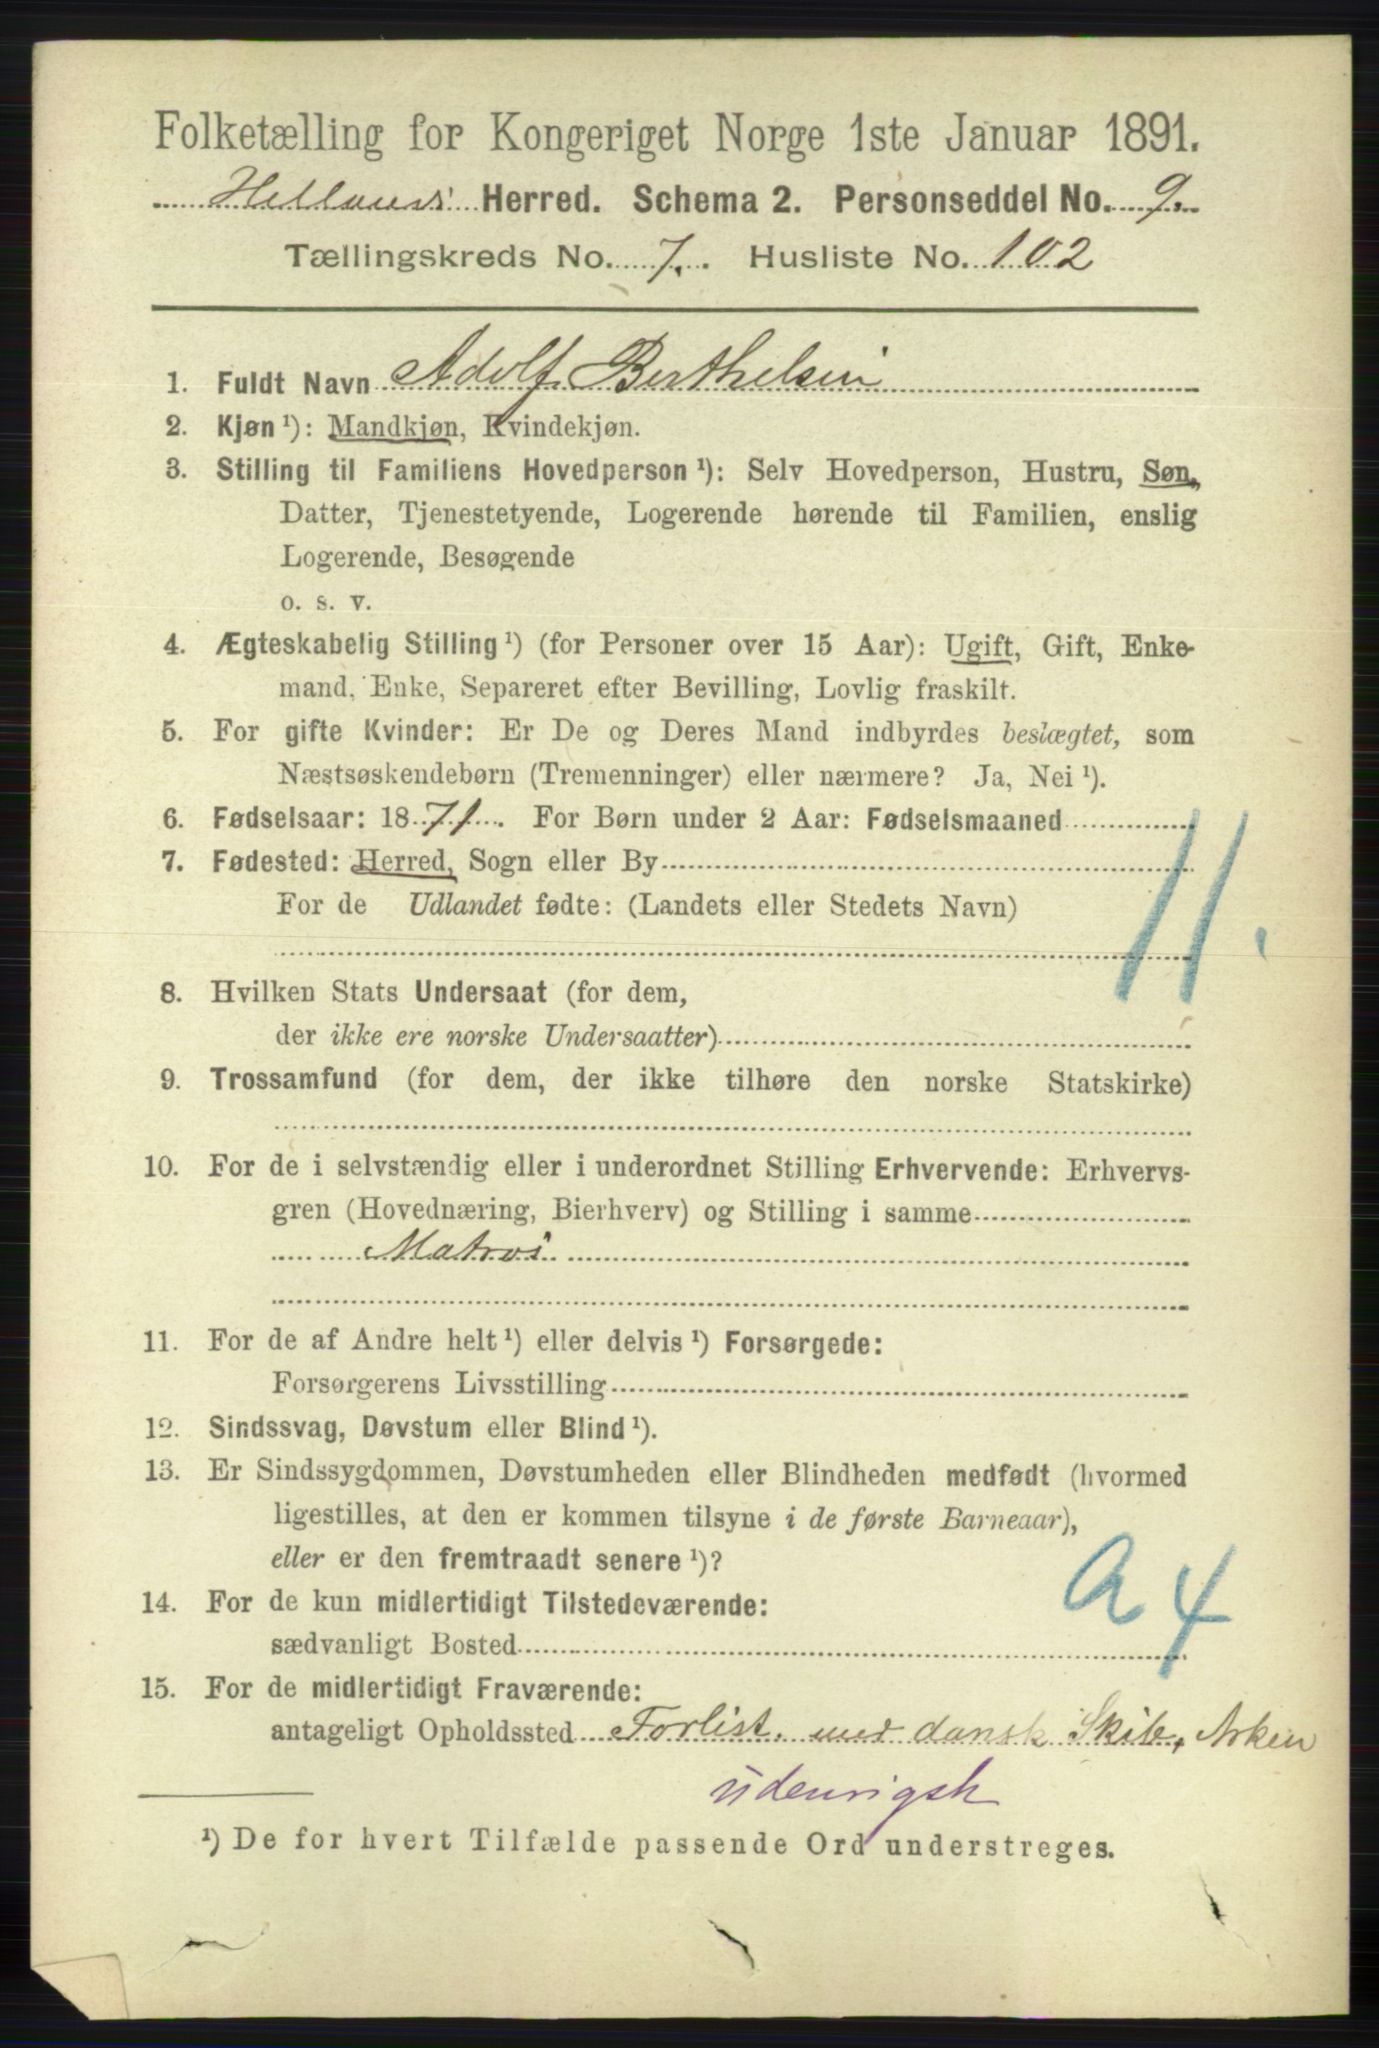 Folketælling for Kongeriget Norge 1ste Januar 1891.
Herred. Schema 2. Personseddel No. 9.
Tællingskreds No. 7. Husliste No. 102
1. Fuldt Navn Adolf Berthelsen
2. Kjøn ¹): Mandkjøn, Kvindekjøn.
3. Stilling til Familiens Hovedperson ¹): Selv Hovedperson, Hustru, Søn,
Datter, Tjenestetyende, Logerende hørende til Familien, enslig
Logerende, Besøgende
o. s. v.
4. Ægteskabelig Stilling ¹) (for Personer over 15 Aar): Ugift, Gift, Enke-
mand, Enke, Separeret efter Bevilling, Lovlig fraskilt.
5. For gifte Kvinder: Er De og Deres Mand indbyrdes beslægtet, som
Næstsøskendebørn (Tremenninger) eller nærmere? Ja, Nei ¹).
6. Fødselsaar: 1871. For Børn under 2 Aar: Fødselsmaaned
7. Fødested: Herred, Sogn eller By
For de Udlandet fødte: (Landets eller Stedets Navn)
11.
8. Hvilken Stats Undersaat (for dem,
der ikke ere norske Undersaatter)
9. Trossamfund (for dem, der ikke tilhøre den norske Statskirke)
10. For de i selvstændig eller i underordnet Stilling Erhvervende: Erhvervs-
gren (Hovednæring, Bierhverv) og Stilling i samme
Matros
11. For de af Andre helt ¹) eller delvis ¹) Forsørgede:
Forsørgerens Livsstilling
12. Sindssvag, Døvstum eller Blind ¹).
13. Er Sindssygdommen, Døvstumheden eller Blindheden medfødt (hvormed
ligestilles, at den er kommen tilsyne i de første Barneaar),
eller er den fremtraadt senere ¹)?
a 4
14. For de kun midlertidigt Tilstedeværende:
sædvanligt Bosted
15. For de midlertidigt Fraværende:
antageligt Opholdssted Forlist. med dansk Skib, Arken
udenrigsk
¹) De for hvert Tilfælde passende Ord understreges.